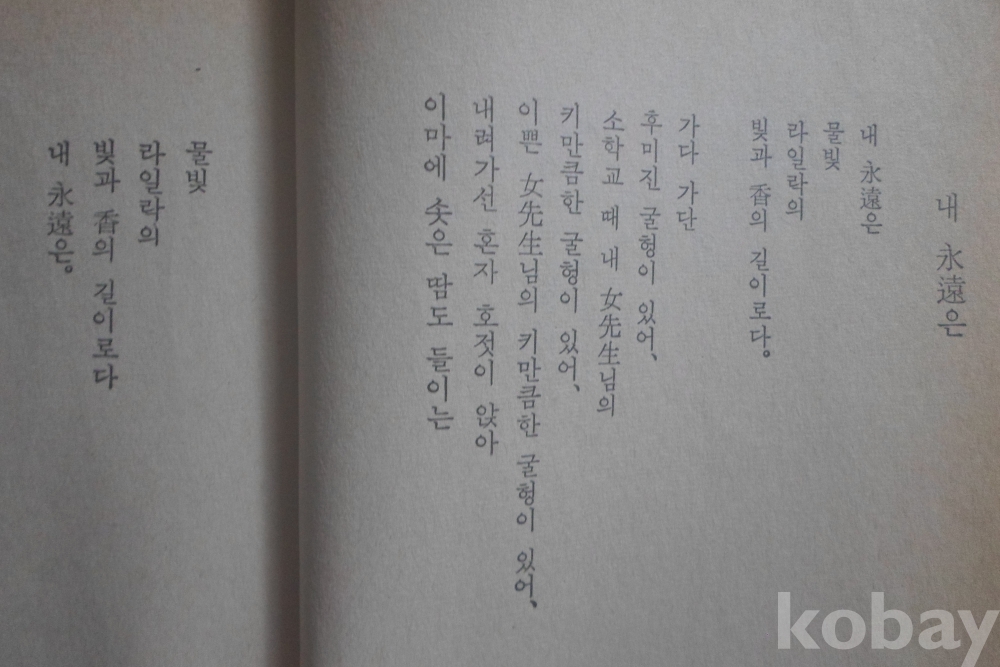 내 永遠은
내 永遠은
물빛
라일락의
빛과 香의 길이로다。
가다 가단
후미진 굴헝이 있어、
소학교 때 내 女先生님의
키만큼한 굴헝이 있어、
이쁜 女先生님의 키만큼한 굴헝이 있어、
내려가선 혼자 호젓이 앉아
이마에 솟은 땀도 들이는
물빛
라일락의
빛과 香의 길이로다
내 永遠은。
kobay